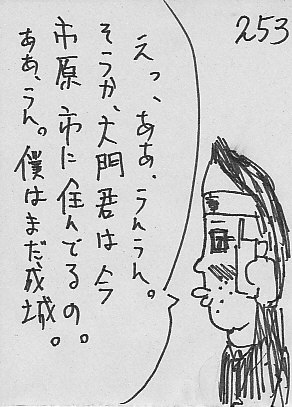 253
えっ、ああ、うんうん。
そうか、大門君は今
市原市に住んでるの。
ああ、うん。僕はまだ成城。